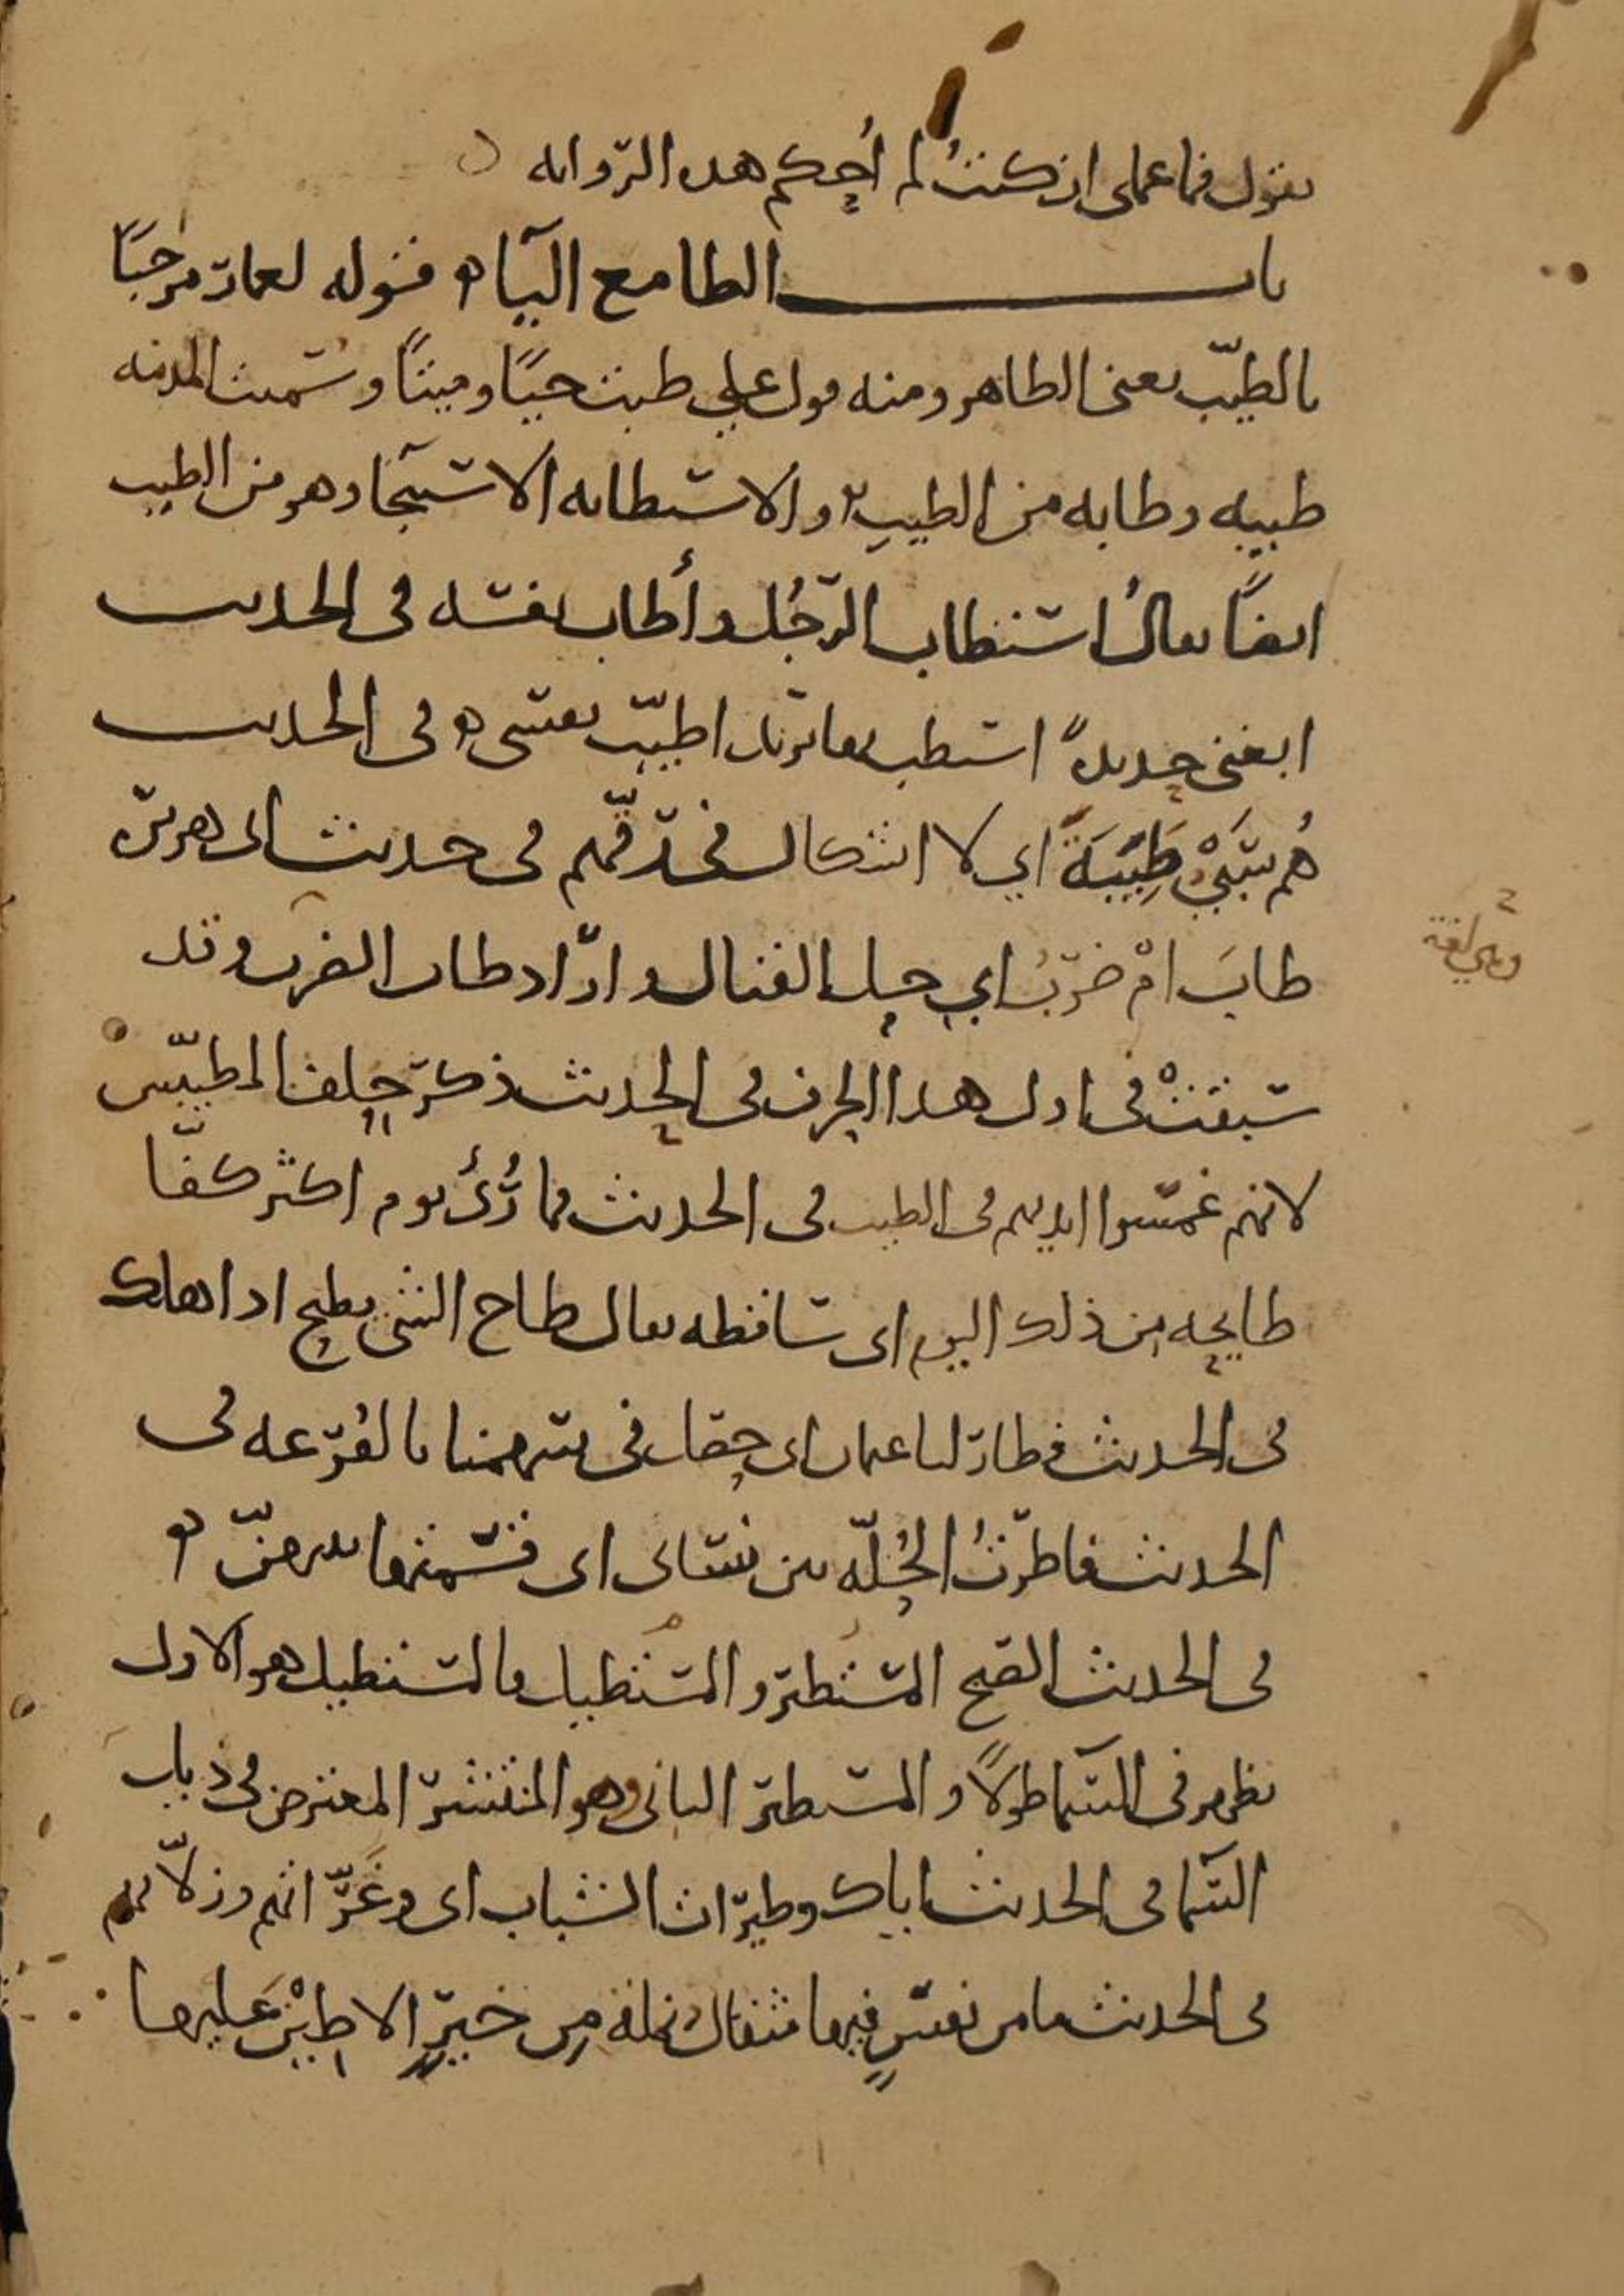 يقول فما عملى ان كنتُ لم أُحكم هذه الرّوايه
باب الطا مع اليآء قوله لعمار مرحبًا
بالطيّب يعنى الطاهر ومنه قول علي طبت حيًّا وميتًا وسُميت المدينه
طيبه وطابه من الطيبِ والاستطابه الاستنجا وهو من الطيب
ايضًا يقالُ استطاب الرّجُل وأطاب نفسه فى الحديث
ابغنى حديدةً استطب بها يريد اطيّب نفسى فى الحديث
هُم سَبْيٌ طِيَبَةٌ اي لا اشكال فى رقّهم فى حديث ابى هريرة
طابَ امْ ضَرْبُ اي حل القتال واراد طاب الضرب وقد
سبقتْ فى اول هذا الحرف فى الحديث ذكر حلف المطيّبين
لانهم غمسوا ايديهم فى الطيب فى الحديث فما رُئى يوم اكثر كفًّا
طايحه من ذلك اليوم اى ساقطه يقال طاح الشى يطيح اذا هلك
فى الحديث فطار لنا عثمان اى حصل فى سهمنا بالقُرعه فى
الحديث فاطرتُ الحُلّه بين نسائى اى قسّمتها بينهنّ
فى الحديث الصبح المستطير والمستطيل فالمستطيل هو الاول
يظهر فى السّما طولًا والمستطير الثانى وهو المنتشر المعترض فى ذباب
السّما فى الحديث اياك وطيرات الشباب اى وغَرّاتهم وزلّاتهم
فى الحديث ما من نفسٍ فيها مثقال نملة من خيرٍ الا طِيْنَ عليها
وهي لغة